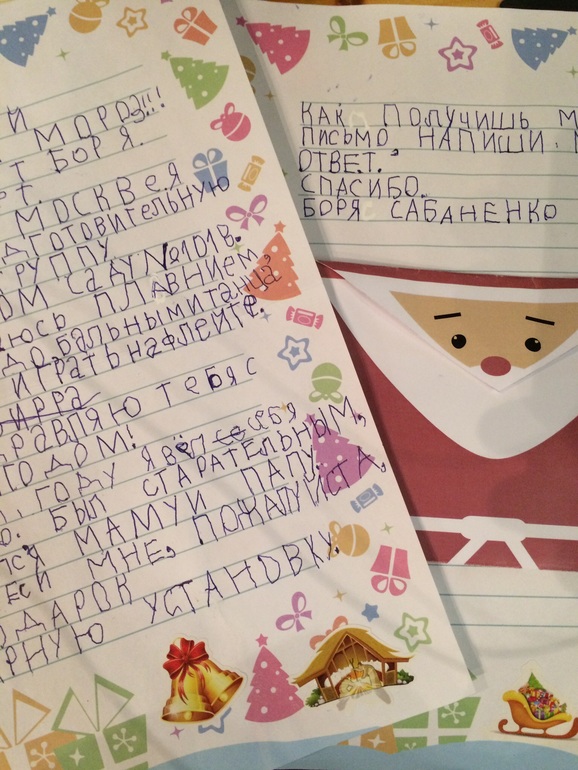 Й
МОРОЗ!!!
Т БОРЯ.
МОСКВЕ Я
ДГОТОВИТЕЛЬНУЮ
ГРУППУ
ОМ САДУ №1011В.
ЮСЬ ПЛАВНИЕМ,
ДО БАЛЬНЫМИ ТАНЦА
ИГРАТЬ НА ФЛЕЙТЕ.
РАВЛЯЮ ТЕБЯ С
ГО ДОМ!
ГОДУ Я ВЁЛ СЕБЯ
О. БЫЛ СТАРАТЕЛЬНЫМ,
ЛСЯ МАМУ И ПАПУ.
ЕСИ МНЕ, ПОЖАЛУЙСТА,
ОДАРОК
РНУЮ УСТАНОВКУ.
КАК ПОЛУЧИШЬ М
ПИСЬМО НАПИШИ
ОТВЕТ.
СПАСИБО.
БОРЯ САБАНЕНКО